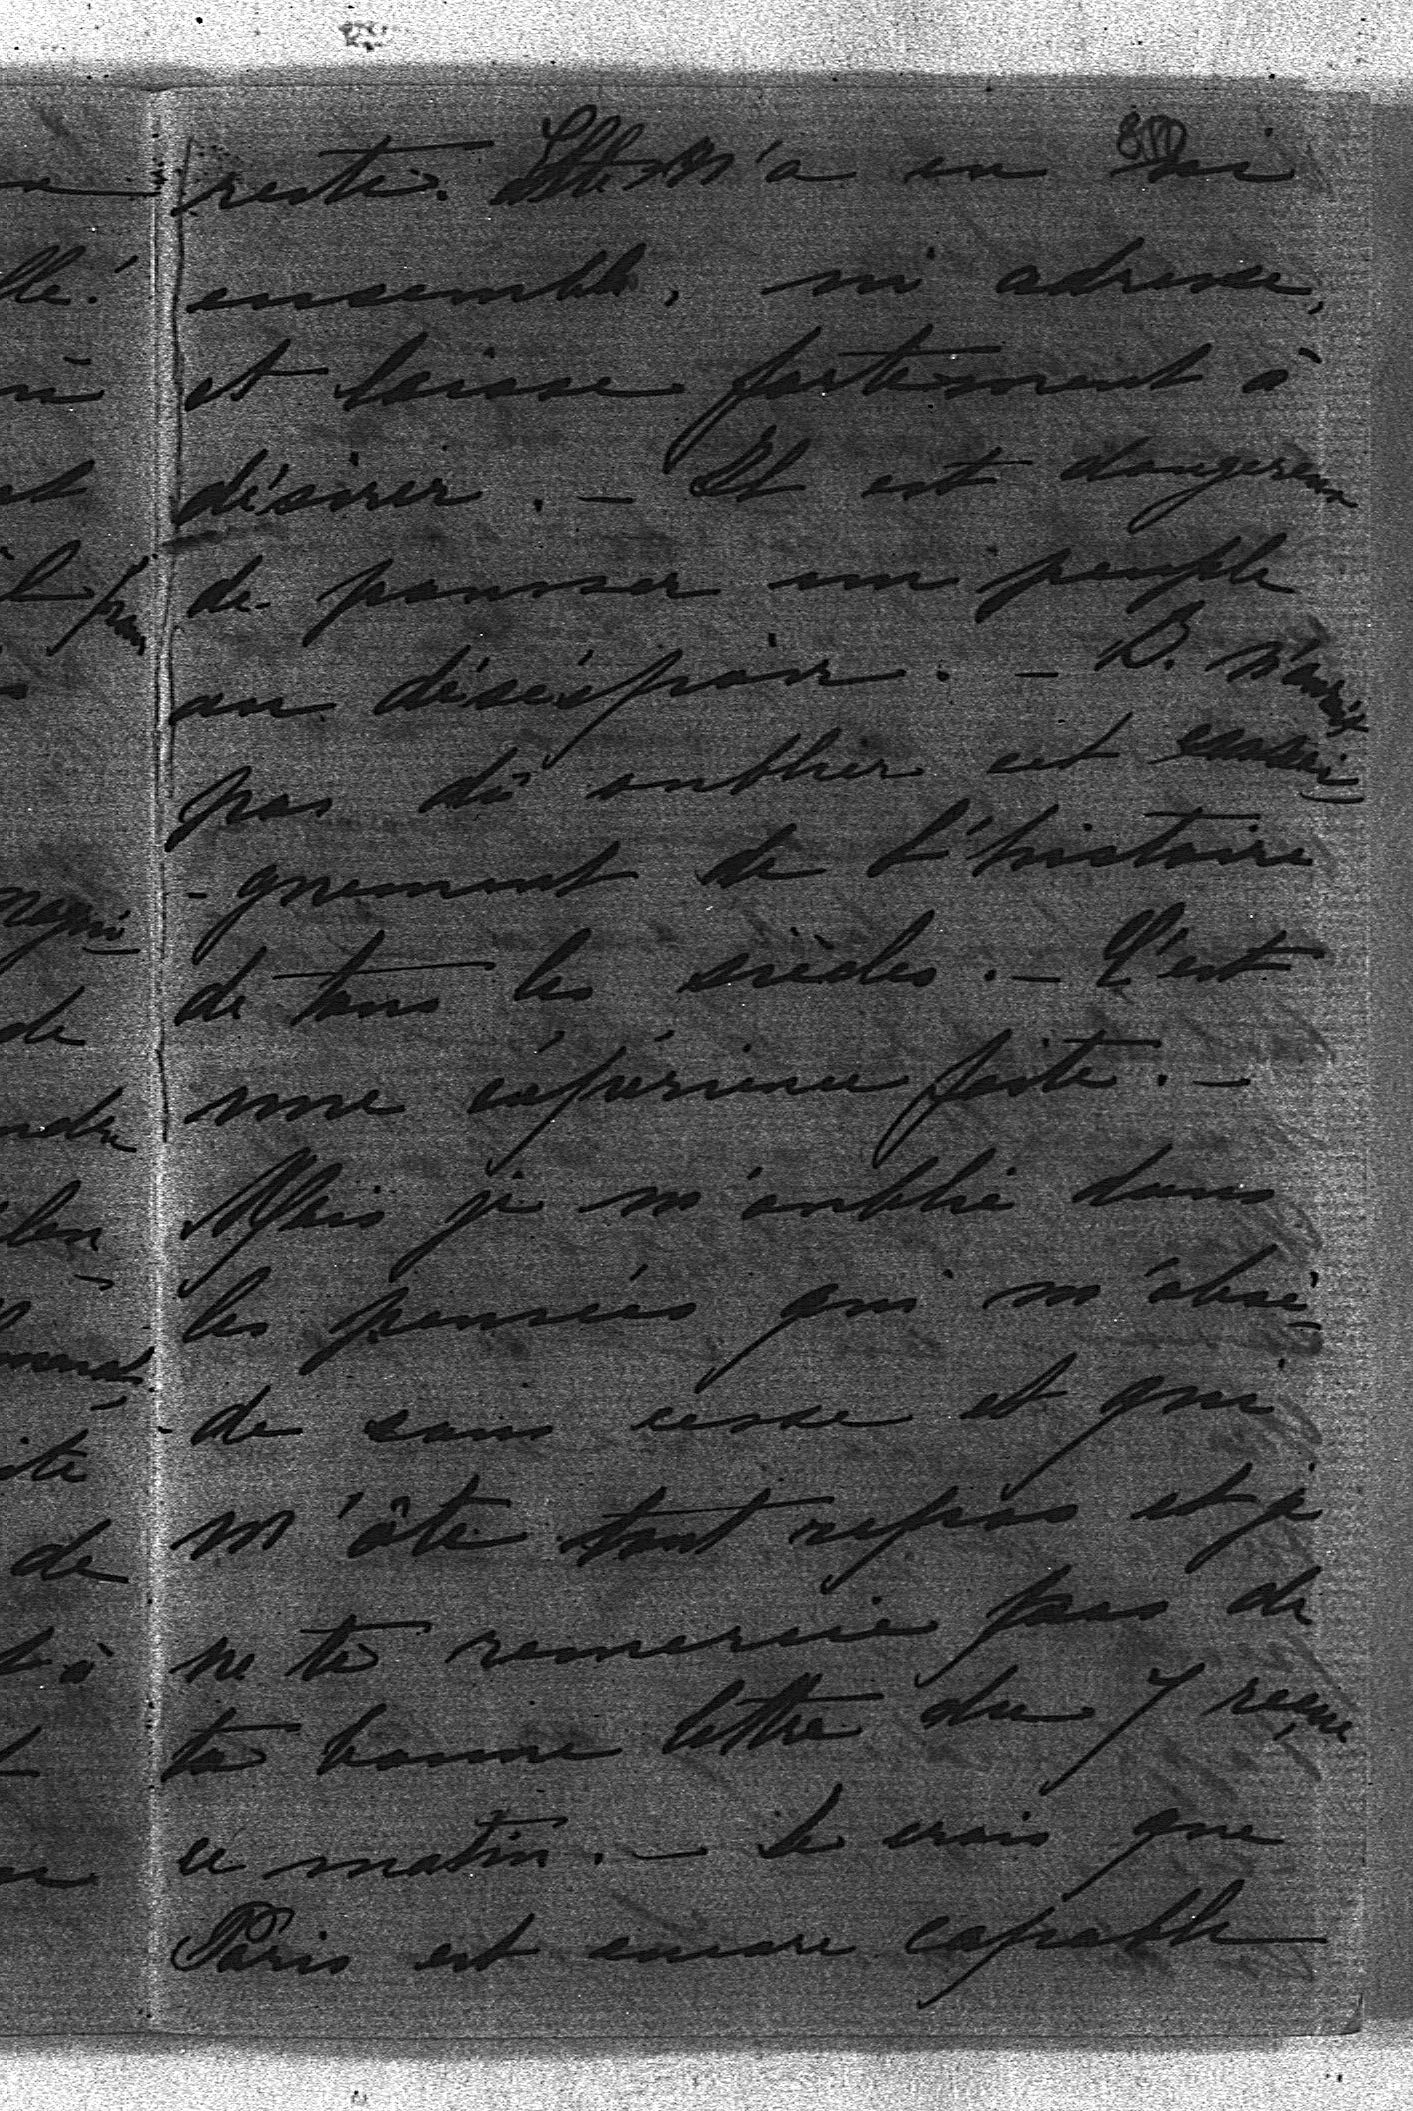 reste. Elle n'a eu ni
ensemble, ni adresse,
et laisse fortement à
désirer. - Il est dangereux
de pousser un peuple
au désespoir. - B. n'aurait
pas dû oublier cet ensei
- gnement de l'histoire
de tous les siècles. - C'est
une expérience faite. -
Mais je m'oublie dans
les pensées qui m'obsè-
- de sans cesse et qui
m'ôte tout repos et je
ne te remercie pas de
ta bonne lettre du 7 reçue
ce matin. - Je crois que
Paris est encore capable